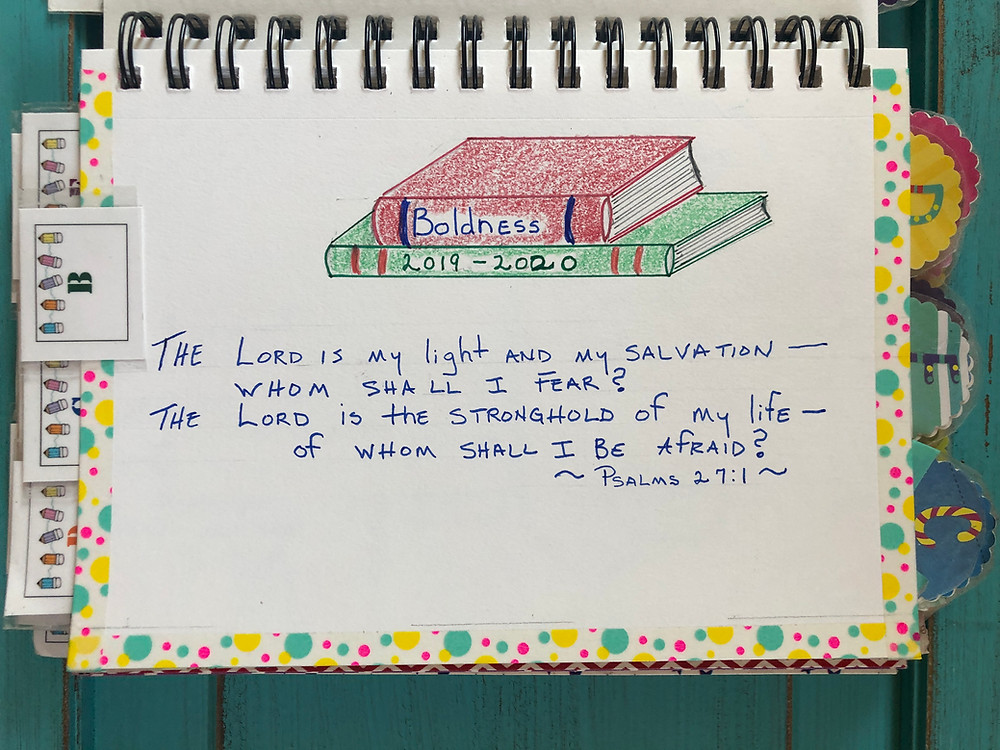 Boldness
2019 - 2020
THE LORD IS my light AND my SALVATION —
WHOM SHALL I FEAR?
THE LORD is the STRONGHOLD of my life —
of WHOM SHALL I BE AfRAID?
~ PSALMS 27:1 ~
B